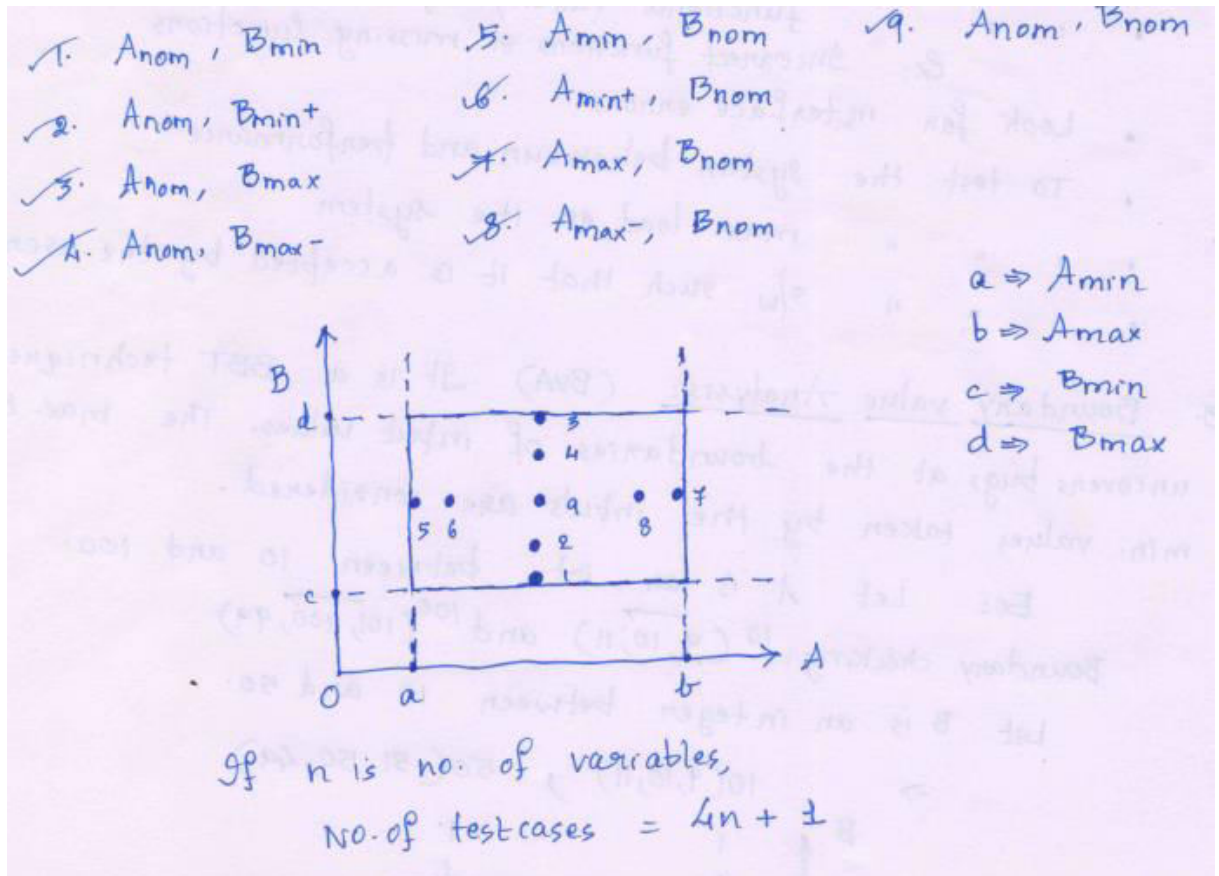 1. Anom, Bmin
2. Anom, Bmin+
3. Anom, Bmax
4. Anom, Bmax-
5. Amin, Bnom
6. Amin+, Bnom
7. Amax, Bnom
8. Amax-, Bnom
9. Anom, Bnom
a ⇒ Amin
b ⇒ Amax
c ⇒ Bmin
d ⇒ Bmax
B
d
3
4
5 6 9 8 7
2
1
c
A
0 a b
If n is no. of variables,
No. of testcases = 4n + 1